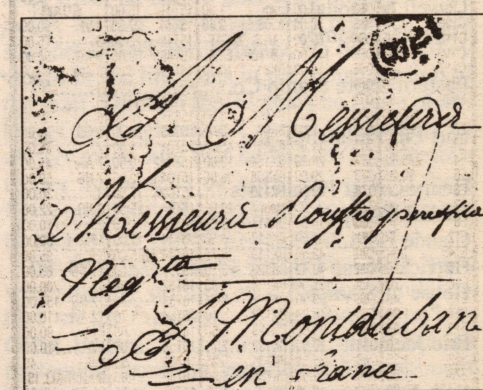 A Messieurs
Messieurs père & fils
Neg.ts
A Montauban
en france